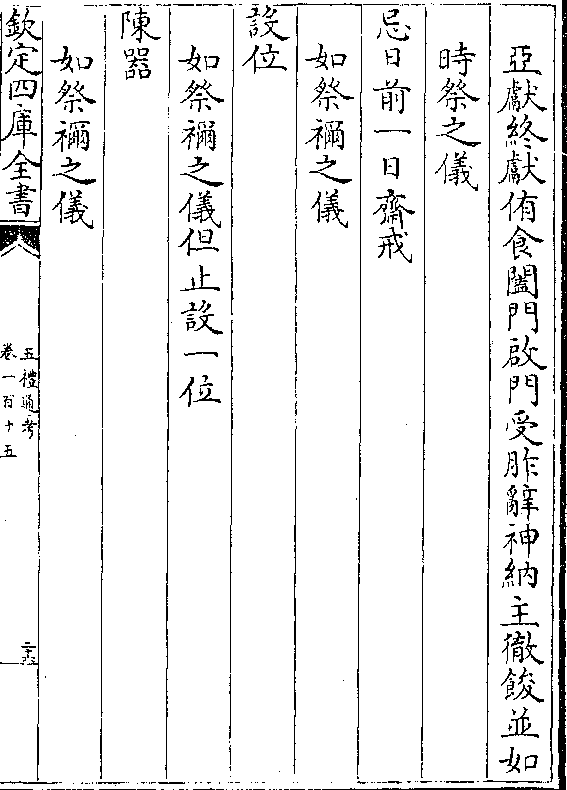 亞獻終獻侑食闔門啟門受胙辭神納主徹餕並如
時祭之儀
忌日前一日齋戒
如祭禰之儀
設位
如祭禰之儀但止設一位
陳器
如祭禰之儀
欽定四庫全書
五禮通考
卷一百十五
二十六